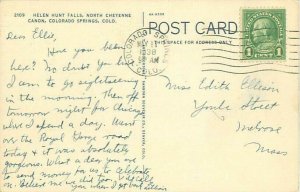 2169 HELEN HUNT FALLS, NORTH CHEYENNE
CANON, COLORADO SPRINGS, COLO.
POST CARD
THIS SPACE FOR ADDRESS ONLY
COLORADO SP
1938
AM
COLO.
1 CENT 1
Dear Ellie,
Have you been
here? No doubt you have.
I am to go sightseeing
in the morning then off
tomorrow night for Chicago
where I spend a day. Went
on the Royal Gorge road
today & it was absolutely
gorgeous. What a dear you are
to send money for us to celebrate
on. Believe me we
you when I get back
Miss Edith Ellison
Yonle Street
Melrose
Mass